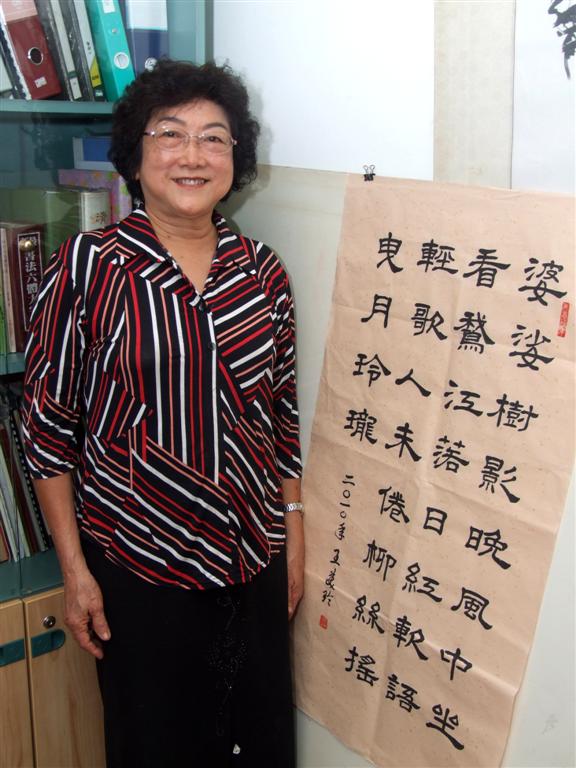 婆娑樹影晚風中坐
看鵞江落日紅軟語
輕歌人未倦柳絲搖
曳月玲瓏
二〇一〇年
書法六體大